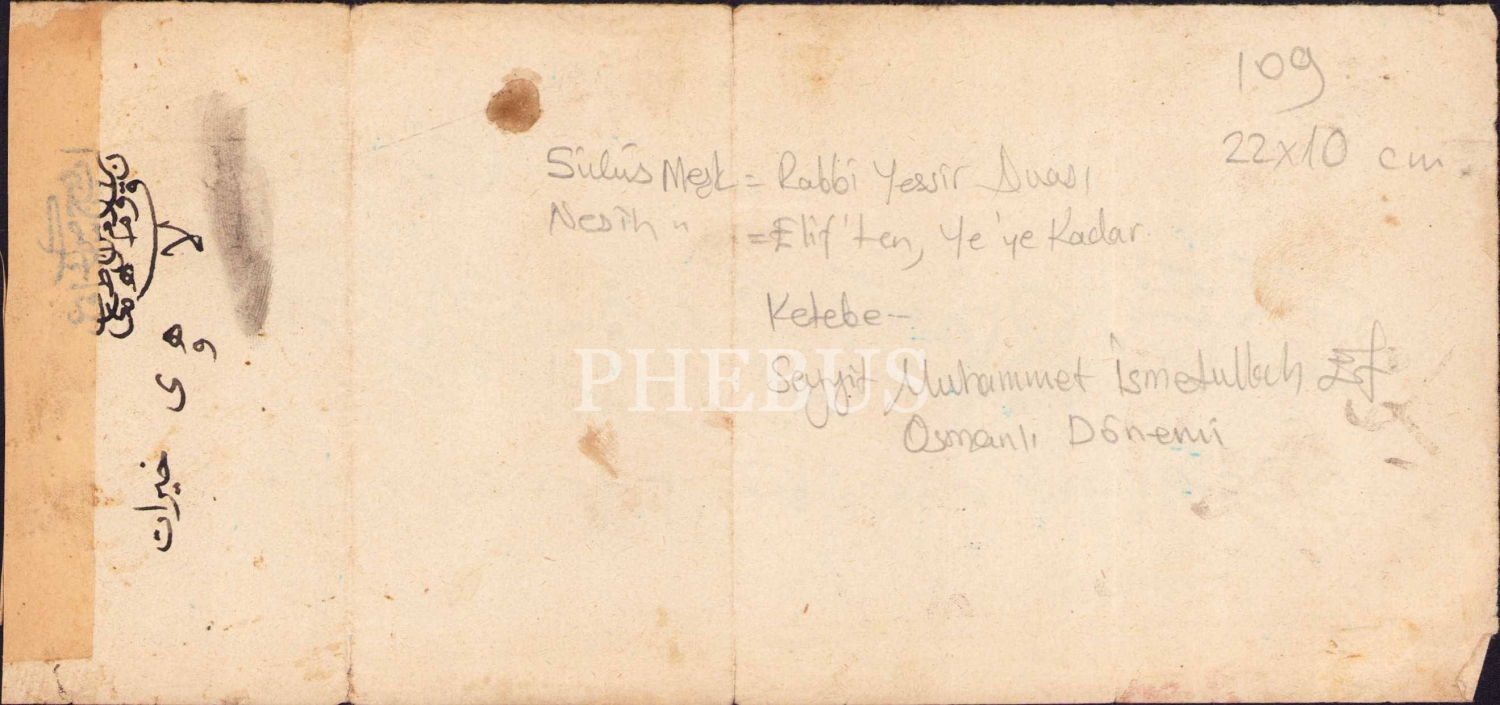 109
22x10 cm.
Sülüs Meşk = Rabbi Yessir Duası
Nesih " = Elif'ten, Ye'ye Kadar
Ketebe-
Seyyit Muhammet İsmetullah Ef
Osmanlı Dönemi
PHEBUS
لا
و
ه
ى
خيرات